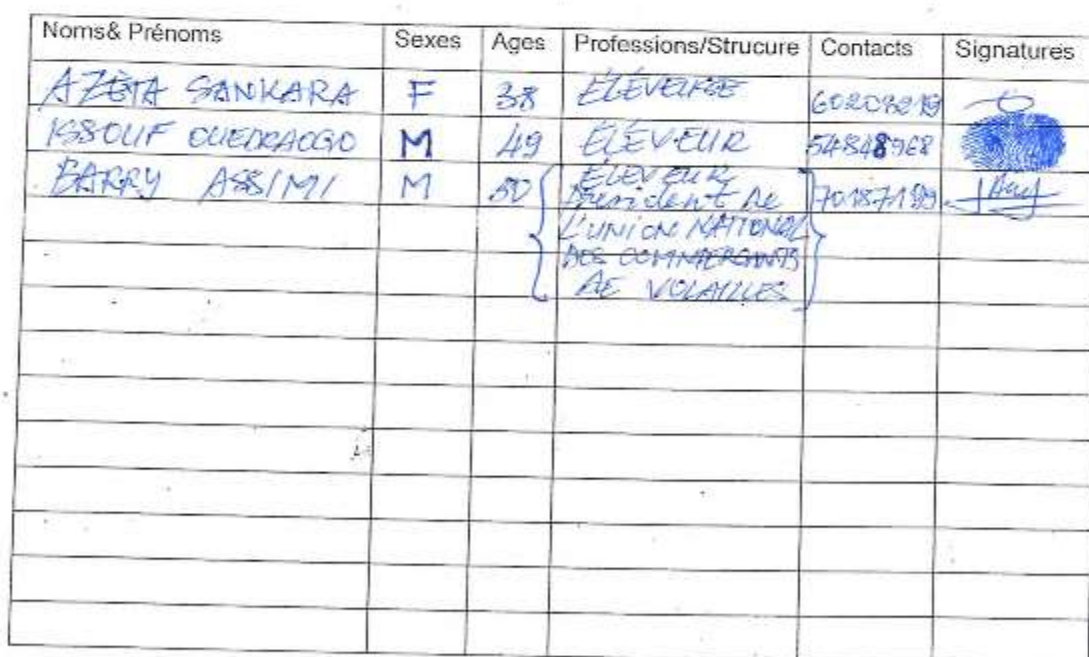 Noms& Prénoms Sexes Ages Professions/Strucure Contacts Signatures
AZÈTA SANKARA F 38 ÉLEVEURE
ISSOUF OUEDRAOGO M 49 ÉLEVEUR 54848968
BARRY ASSIMI M 50 ÉLEVEUR 70187199
Président de
L'UNION NATIONAL
DES COMMERÇANTS
DE VOLAILLES